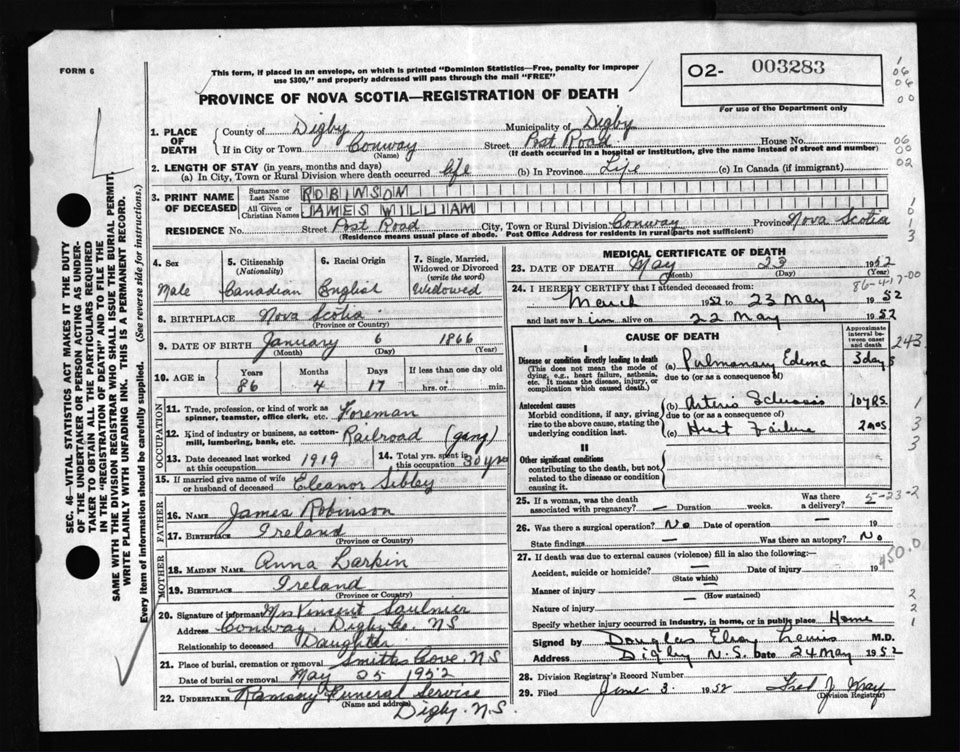 FORM 6
This form, if placed in an envelope, on which is printed "Dominion Statistics—Free, penalty for improper
use $300," and properly addressed will pass through the mail "FREE"
PROVINCE OF NOVA SCOTIA—REGISTRATION OF DEATH
02- 003283
For use of the Department only
1. PLACE OF DEATH County of Digby Municipality of Digby
If in City or Town Conway (Name) Street Post Road House No.
(If death occurred in a hospital or institution, give the name instead of street and number)
2. LENGTH OF STAY (in years, months and days)
(a) In City, Town or Rural Division where death occurred life (b) In Province Life (c) In Canada (if immigrant)
3. PRINT NAME OF DECEASED
Surname or Last Name ROBINSON
All Given or Christian Names JAMES WILLIAM
RESIDENCE No. Street Post Road City, Town or Rural Division Conway Province Nova Scotia
(Residence means usual place of abode. Post Office Address for residents in rural parts not sufficient)
4. Sex Male
5. Citizenship (Nationality) Canadian
6. Racial Origin English
7. Single, Married, Widowed or Divorced (write the word) Widowed
8. BIRTHPLACE Nova Scotia
(Province or Country)
9. DATE OF BIRTH January 6 1866
(Month) (Day) (Year)
10. AGE in Years 86 Months 4 Days 17 If less than one day old hrs. or min.
OCCUPATION
11. Trade, profession, or kind of work as spinner, teamster, office clerk, etc. Foreman
12. Kind of industry or business, as cotton-mill, lumbering, bank, etc. Railroad (gang)
13. Date deceased last worked at this occupation 1919
14. Total yrs. spent in this occupation 30 yrs
15. If married give name of wife or husband of deceased Eleanor Sibley
FATHER
16. NAME James Robinson
17. BIRTHPLACE Ireland
(Province or Country)
MOTHER
18. MAIDEN NAME Anna Larkin
19. BIRTHPLACE Ireland
(Province or Country)
20. Signature of informant Mrs Vincent Saulnier
Address Conway, Digby Co. N S
Relationship to deceased Daughter
21. Place of burial, cremation or removal Smiths Cove. N S
Date of burial or removal May 25 1952
22. UNDERTAKER Ramsay Funeral Service
(Name and address)
Digby. N.S.
MEDICAL CERTIFICATE OF DEATH
23. DATE OF DEATH May 23 1952
(Month) (Day) (Year)
24. I HEREBY CERTIFY that I attended deceased from:
86-4-17-00
March 1952 to 23 May 1952
and last saw him alive on 22 May 1952
CAUSE OF DEATH
Approximate interval between onset and death
I
Disease or condition directly leading to death
(This does not mean the mode of dying, e.g., heart failure, asthenia, etc. It means the disease, injury, or complication which caused death.)
(a) Pulmonary Edema 3 days
due to (or as a consequence of)
Antecedent causes
Morbid conditions, if any, giving rise to the above cause, stating the underlying condition last.
(b) Arterio Sclerosis 10 yrs
due to (or as a consequence of)
(c) Heart Failure
II
Other significant conditions
contributing to the death, but not related to the disease or condition causing it.
243
25. If a woman, was the death associated with pregnancy? — Duration weeks. Was there a delivery?
5-23-2
26. Was there a surgical operation? No Date of operation — 19
State findings — Was there an autopsy? No
27. If death was due to external causes (violence) fill in also the following:—
Accident, suicide or homicide? — Date of injury 19
(State which)
Manner of injury —
(How sustained)
Nature of injury
Specify whether injury occurred in industry, in home, or in public place Home
Signed by Douglas Elroy Lewis M.D.
Address Digby N.S. Date 24 May 1952
28. Division Registrar's Record Number
29. Filed June 3. 1952 Fred J Wray
(Division Registrar)
SEC. 46—VITAL STATISTICS ACT MAKES IT THE DUTY
OF THE UNDERTAKER OR PERSON ACTING AS UNDER-
TAKER TO OBTAIN ALL THE PARTICULARS REQUIRED
IN THE "REGISTRATION OF DEATH" AND TO FILE THE
SAME WITH THE DIVISION REGISTRAR WHO SHALL ISSUE THE BURIAL PERMIT.
WRITE PLAINLY WITH UNFADING INK. THIS IS A PERMANENT RECORD.
Every item of information should be carefully supplied. (See reverse side for instructions.)